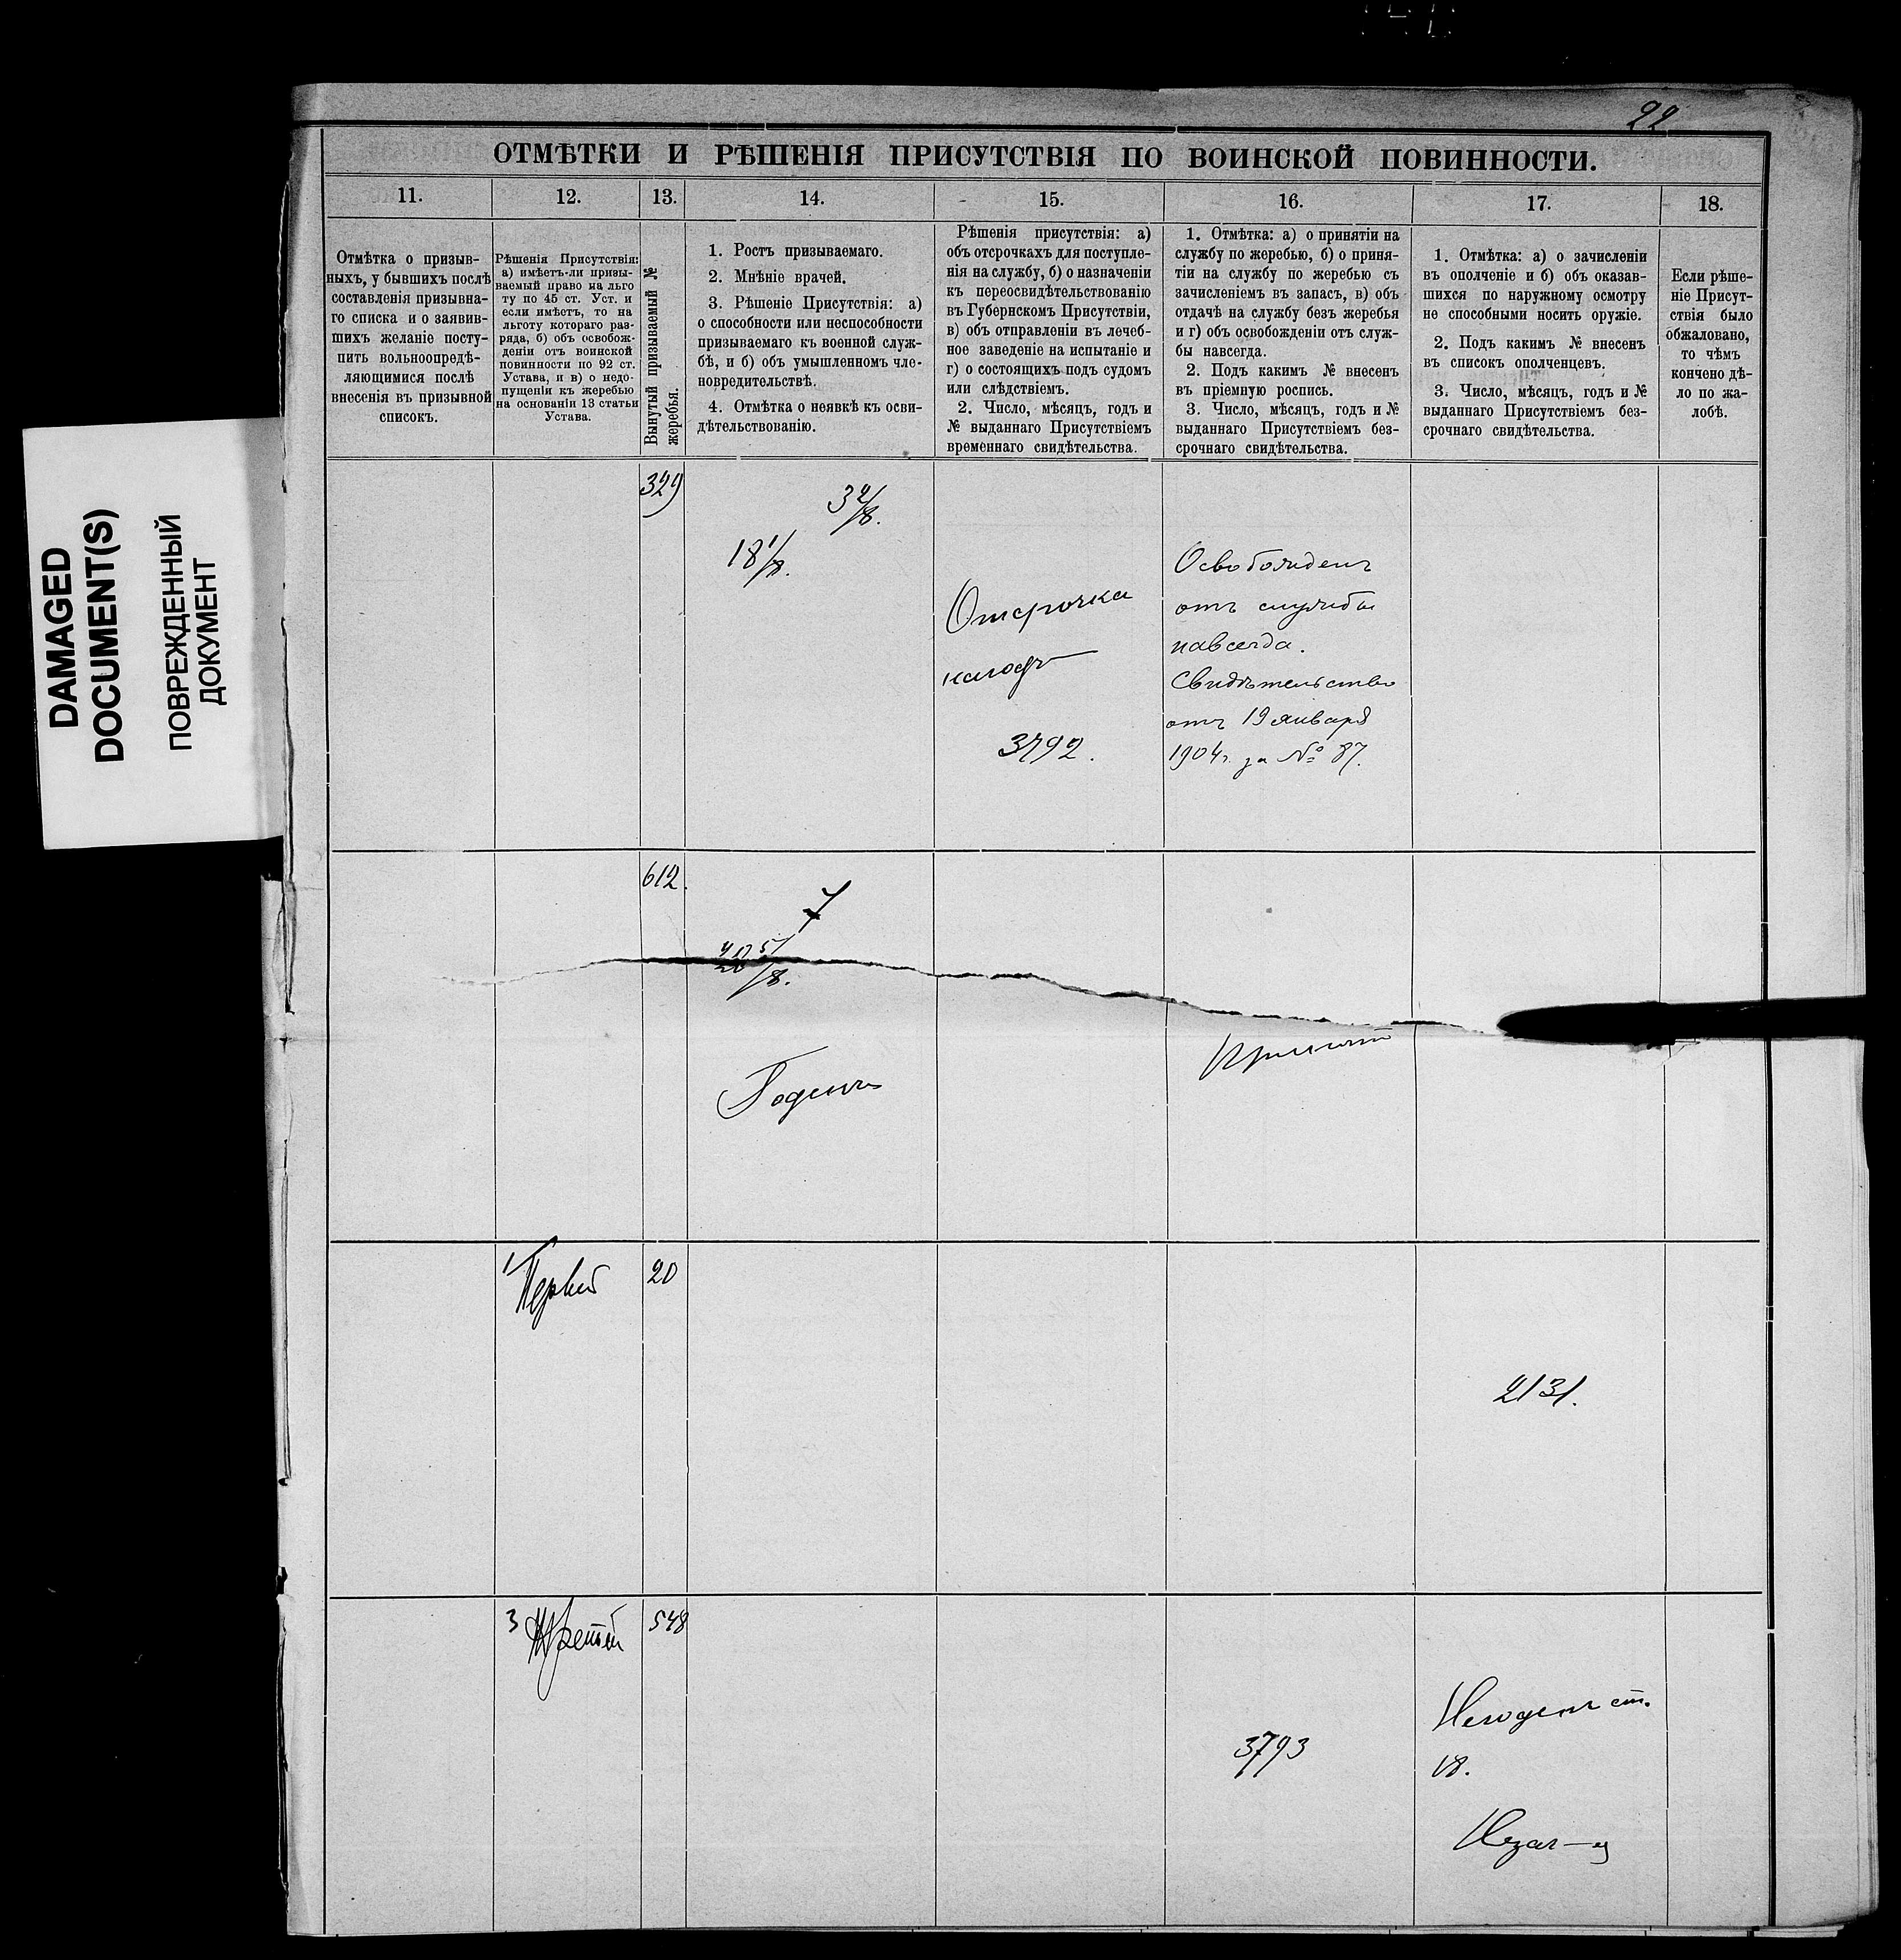 22
ОТМѢТКИ И РѢШЕНІЯ ПРИСУТСТВІЯ ПО ВОИНСКОЙ ПОВИННОСТИ.
11.
12.
13.
14.
15.
16.
17.
18.
Отмѣтка о призыв-
ныхъ, у бывшихъ послѣ
составленія призывна-
го списка и о заявив-
шихъ желаніе посту-
пить вольноопредѣ-
ляющимися послѣ
внесенія въ призывной
списокъ.
Рѣшенія Присутствія:
а) имѣетъ-ли призы-
ваемый право на льго
ту по 45 ст. Уст. и
если имѣетъ, то на
льготу котораго раз-
ряда, б) объ освобож-
деніи отъ воинской
повинности по 92 ст.
Устава, и в) о недо-
пущеніи къ жеребью
на основаніи 13 статьи
Устава.
Вынутый призываемый №
жеребья.
1. Ростъ призываемаго.
2. Мнѣніе врачей.
3. Рѣшеніе Присутствія: а)
о способности или неспособности
призываемаго къ военной служ-
бѣ, и б) объ умышленномъ чле-
новредительствѣ.
4. Отмѣтка о неявкѣ къ осви-
дѣтельствованію.
Рѣшенія присутствія: а)
объ отсрочкахъ для поступле-
нія на службу, б) о назначеніи
къ переосвидѣтельствованію
въ Губернскомъ Присутствіи,
в) объ отправленіи въ лечеб-
ное заведеніе на испытаніе и
г) о состоящихъ подъ судомъ
или слѣдствіемъ.
2. Число, мѣсяцъ, годъ и
№ выданнаго Присутствіемъ
временнаго свидѣтельства.
1. Отмѣтка: а) о принятіи на
службу по жеребью, б) о приня-
тіи на службу по жеребью съ
зачисленіемъ въ запасъ, в) объ
отдачѣ на службу безъ жеребья
и г) объ освобожденіи отъ служ-
бы навсегда.
2. Подъ какимъ № внесенъ
въ пріемную роспись.
3. Число, мѣсяцъ, годъ и №
выданнаго Присутствіемъ без-
срочнаго свидѣтельства.
1. Отмѣтка: а) о зачисленіи
въ ополченіе и б) объ оказав-
шихся по наружному осмотру
не способными носить оружіе.
2. Подъ какимъ № внесенъ
въ списокъ ополченцевъ.
3. Число, мѣсяцъ, годъ и №
выданнаго Присутствіемъ без-
срочнаго свидѣтельства.
Если рѣше-
ніе Присут-
ствія было
обжаловано,
то чѣмъ
кончено дѣ-
ло по жа-
лобѣ.
DAMAGED
DOCUMENT(S)
ПОВРЕЖДЕННЫЙ
ДОКУМЕНТ
329
18 1/8.
Отсрочка
на годъ
3792.
Освобожденъ
отъ службы
навсегда.
Свидѣтельство
отъ 19 января
1904 г. за № 87.
612.
Годенъ
Принятъ
1 Первый
20
2131.
3 Третій
548
3793
Негоденъ ст.
18.